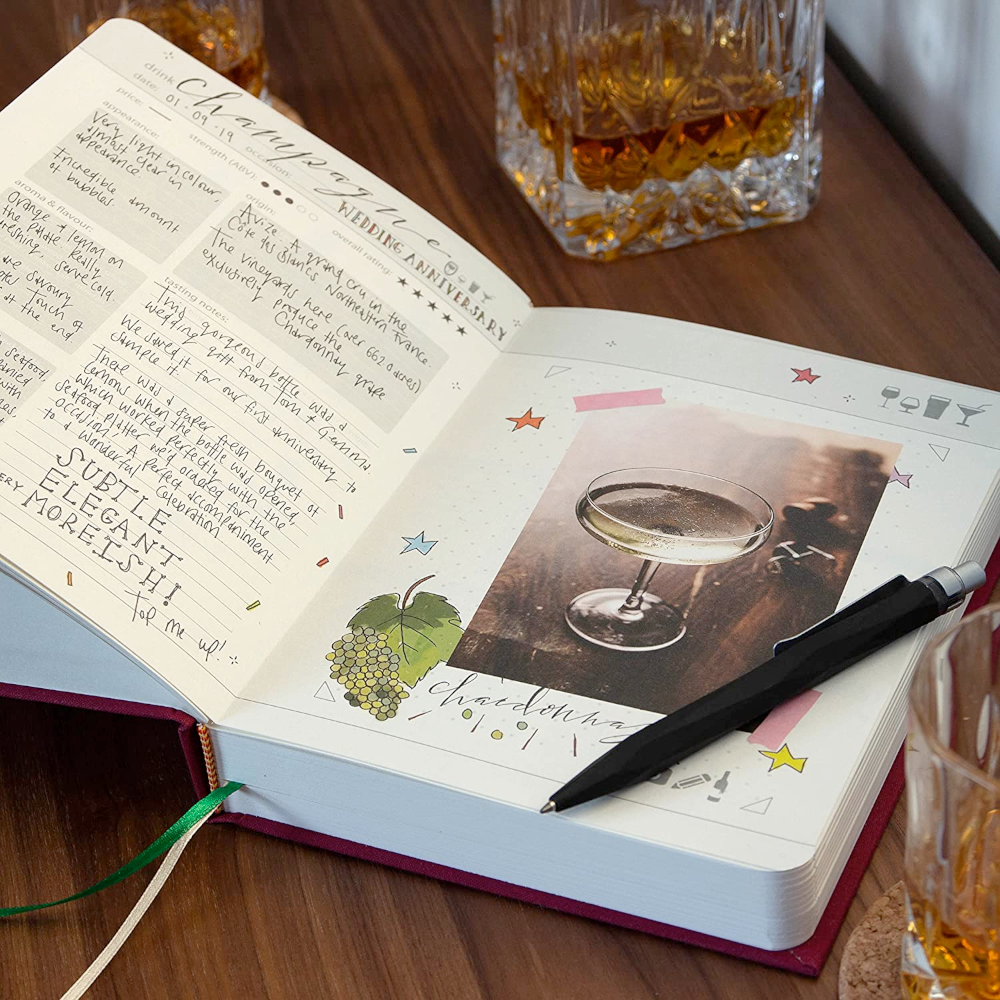 drink: Champagne
date: 01.09.19
price:
strength (ABV):
occasion: WEDDING ANNIVERSARY
overall rating:
appearance:
Very light in colour,
almost clear in
appearance
Incredible amount
of bubbles.
origin:
Avize. A grand cru in the
Côte des Blancs Northeastern France.
The vineyards here (over 662.0 acres)
exclusively produce the
Chardonnay grape
aroma & flavour:
Orange & lemon on
the palate. Really
refreshing, serve cold.
savoury
touch of
at the end.
seafood
with
tasting notes:
This gorgeous bottle was a
wedding gift from Tom & Gemma
We saved it for our first anniversary to
sample it.
There was a super fresh bouquet of
lemons when the bottle was opened,
which worked perfectly with the
seafood platter we'd ordered for the
occasion. A perfect accompaniment
to a wonderful celebration
SUBTLE
ELEGANT
VERY MOREISH!
Top me up!
chardonnay